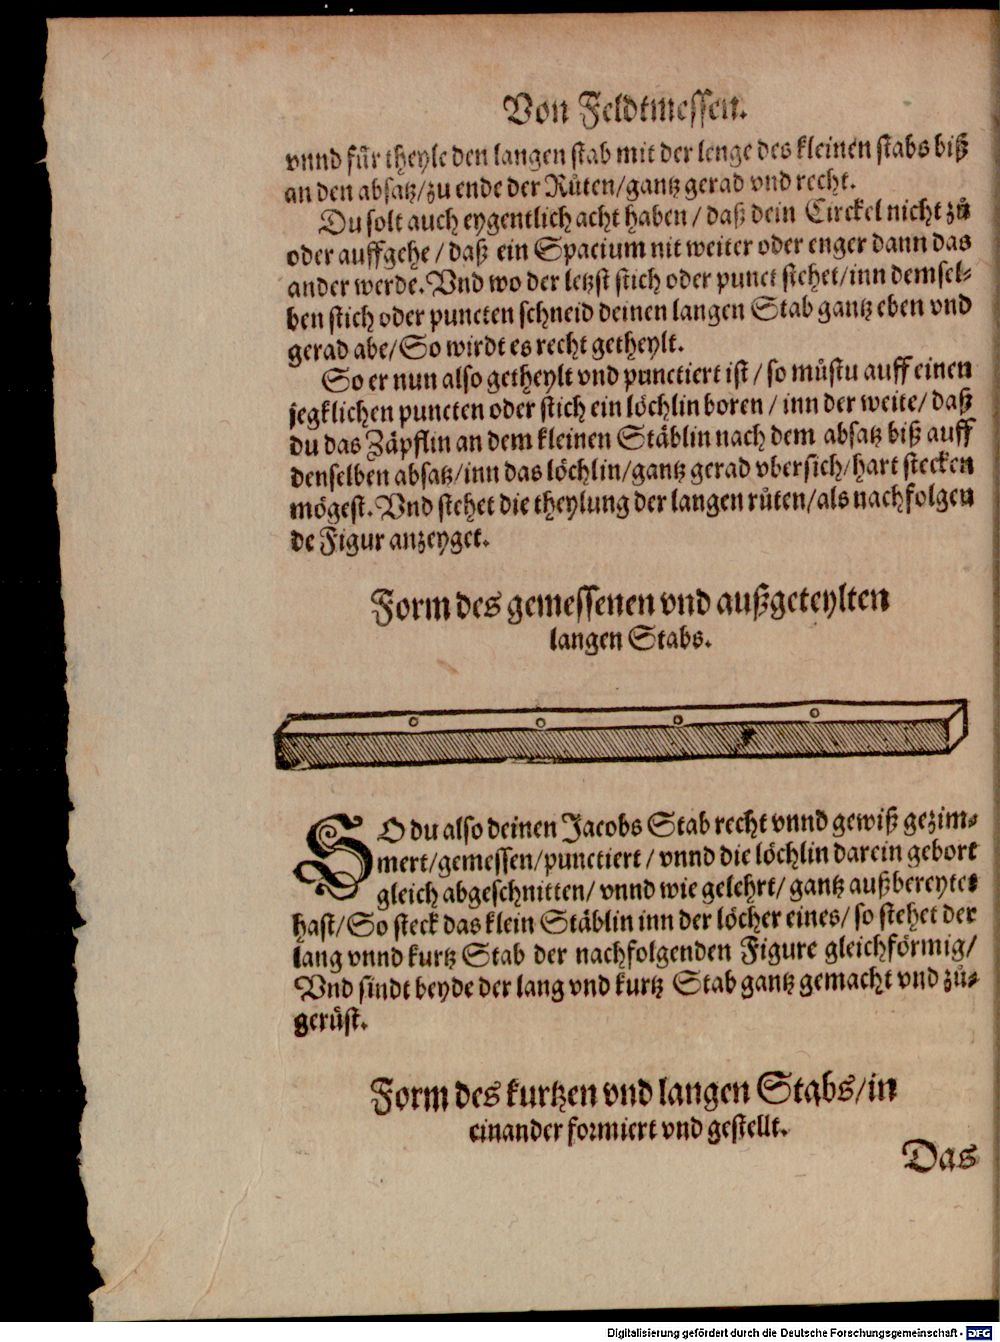 Von Feldtmessen.
vnnd für theyle den langen stab mit der lenge des kleinen stabs biß
an den absatz/zu ende der Růten/gantz gerad vnd recht.
Du solt auch eygentlich acht haben/ daß dein Circkel nicht zů
oder auffgehe/ daß ein Spacium nit weiter oder enger dann das
ander werde. Vnd wo der letzst stich oder punct stehet/inn demsel-
ben stich oder puncten schneid deinen langen Stab gantz eben vnd
gerad abe/So wirdt es recht getheylt.
So er nun also getheylt vnd punctiert ist/ so můstu auff einen
jegklichen puncten oder stich ein löchlin boren/ inn der weite/ daß
du das Zäpflin an dem kleinen Stäblin nach dem absatz biß auff
denselben absatz/inn das löchlin/gantz gerad vbersich/hart stecken
mögest. Vnd stehet die theylung der langen růten/als nachfolgen
de Figur anzeyget.
Form des gemessenen vnd außgeteylten
langen Stabs.
SO du also deinen Jacobs Stab recht vnnd gewiß gezim-
mert/gemessen/punctiert/ vnnd die löchlin darein gebort
gleich abgeschnitten/ vnnd wie gelehrt/ gantz außbereytet
hast/So steck das klein Stäblin inn der löcher eines/ so stehet der
lang vnnd kurtz Stab der nachfolgenden Figure gleichförmig/
Vnd sindt beyde der lang vnd kurtz Stab gantz gemacht vnd zů-
gerüst.
Form des kurtzen vnd langen Stabs/in
einander formiert vnd gestellt.
Das
Digitalisierung gefördert durch die Deutsche Forschungsgemeinschaft - DFG